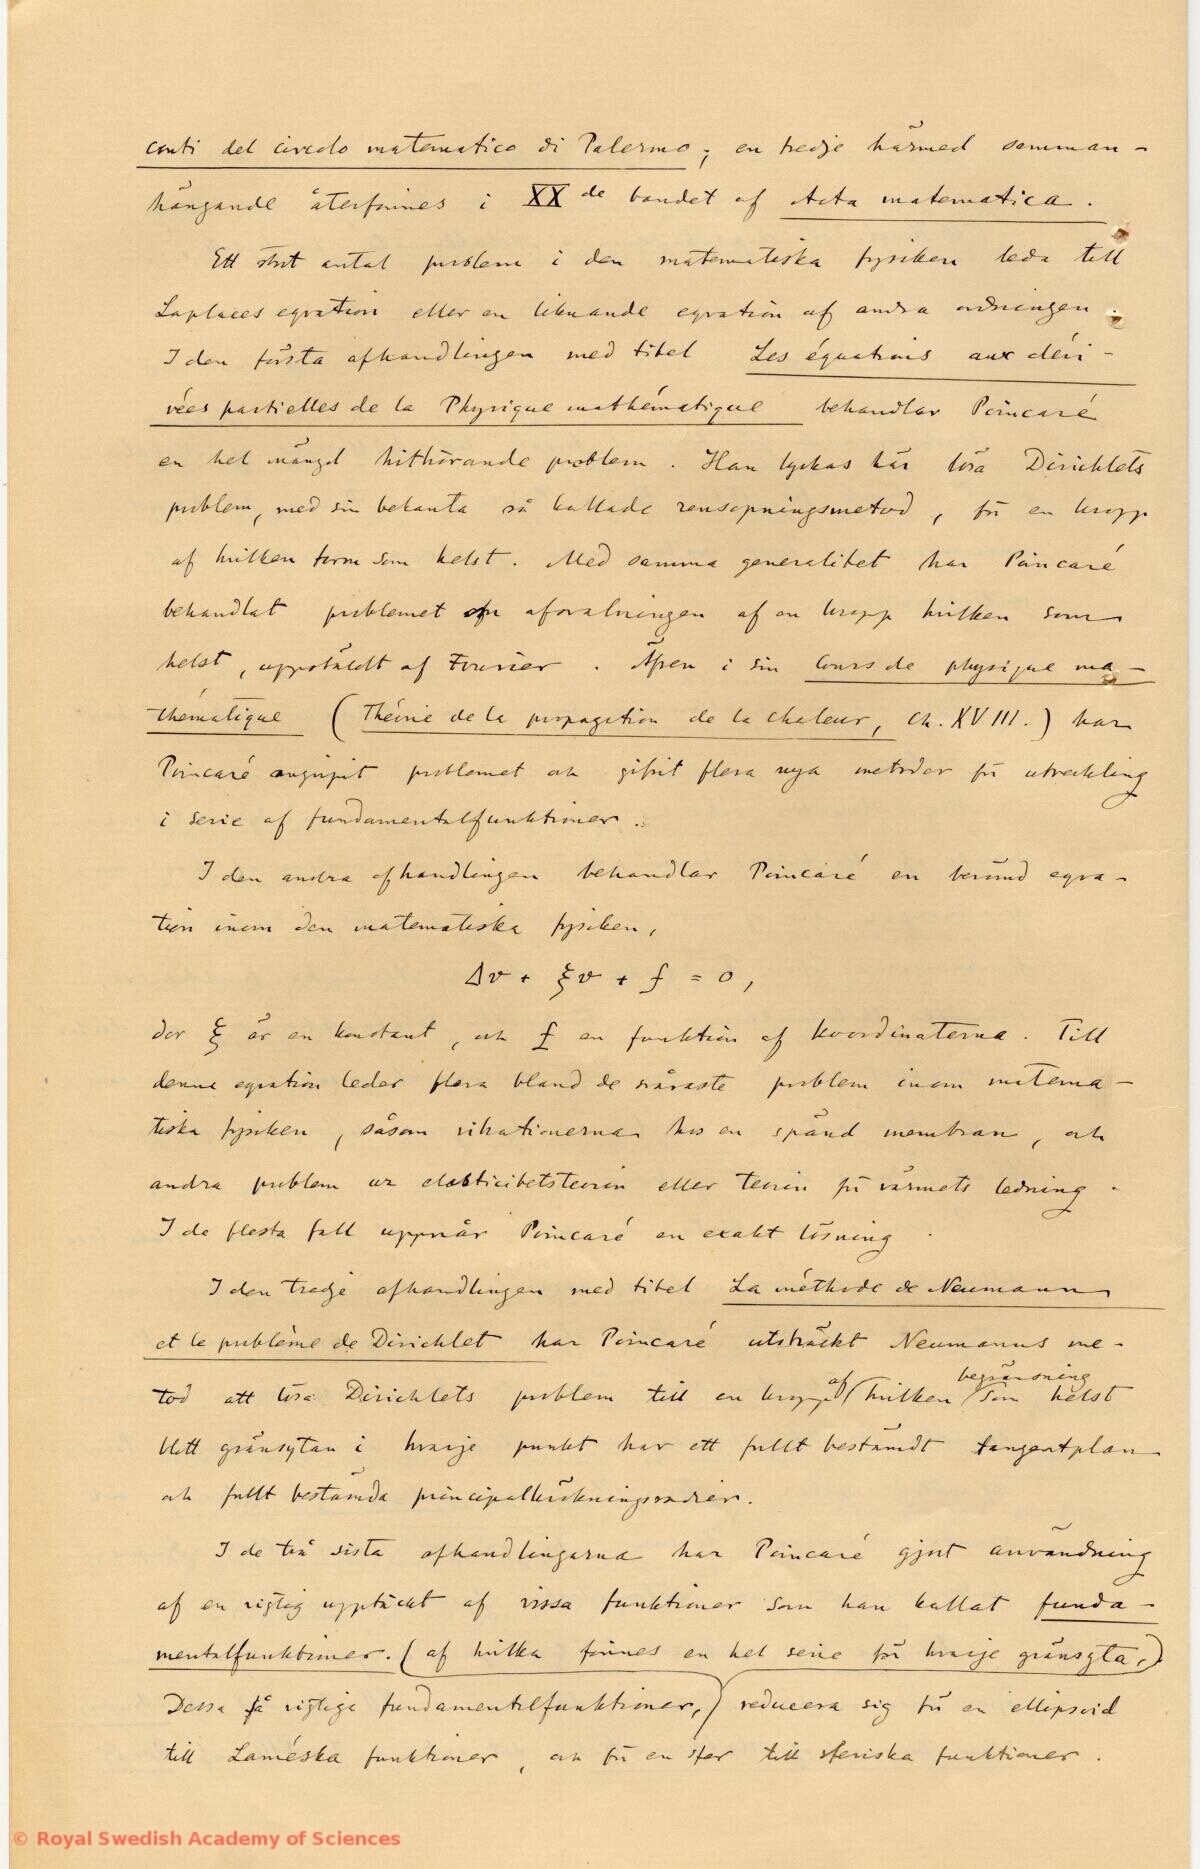 conti del circolo matematico di Palermo; en tredje härmed samman-
hängande återfinnes i XX de bandet af Acta matematica.
Ett stort antal problem i den matematiska fysiken leda till
Laplaces eqvation eller en liknande eqvation af andra ordningen.
I den första afhandlingen med titel Les équations aux déri-
vées partielles de la Physique mathématique behandlar Poincaré
en hel mängd hithörande problem. Han lyckas här lösa Dirichlets
problem, med sin bekanta så kallade rensopningsmetod, för en kropp
af hvilken form som helst. Med samma generalitet har Poincaré
behandlat problemet om afsvalningen af en kropp hvilken som
helst, uppstäldt af Fourier. Äfven i sin Cours de physique ma-
thématique (Théorie de la propagation de la chaleur, ch. XVIII.) har
Poincaré angripit problemet och gifvit flera nya metoder för utveckling
i serie af fundamentalfunktioner.
I den andra afhandlingen behandlar Poincaré en berömd eqva-
tion inom den matematiska fysiken,
Δv + ξv + f = 0,
der ξ är en konstant, och f en funktion af koordinaterna. Till
denna eqvation leder flera bland de svåraste problem inom matema-
tiska fysiken, såsom vibrationerna hos en spänd membran, och
andra problem ur elasticitetsteorin eller teorin för värmets ledning.
I de flesta fall uppnår Poincaré en exakt lösning.
I den tredje afhandlingen med titel La méthode de Neumann
et le problème de Dirichlet har Poincaré utsträckt Neumanns me-
tod att lösa Dirichlets problem till en kropp af hvilken begränsning som helst
blott gränsytan i hvarje punkt har ett fullt bestämdt tangentplan
och fullt bestämda principalkrökningsradier.
I de två sista afhandlingarna har Poincaré gjort användning
af en vigtig upptäckt af vissa funktioner som han kallat funda-
mentalfunktioner. (af hvilka finnes en hel serie för hvarje gränsyta,)
Dessa så vigtiga fundamentalfunktioner,) reducera sig för en ellipsoid
till Laméska funktioner, och för en sfer till sferiska funktioner.
© Royal Swedish Academy of Sciences